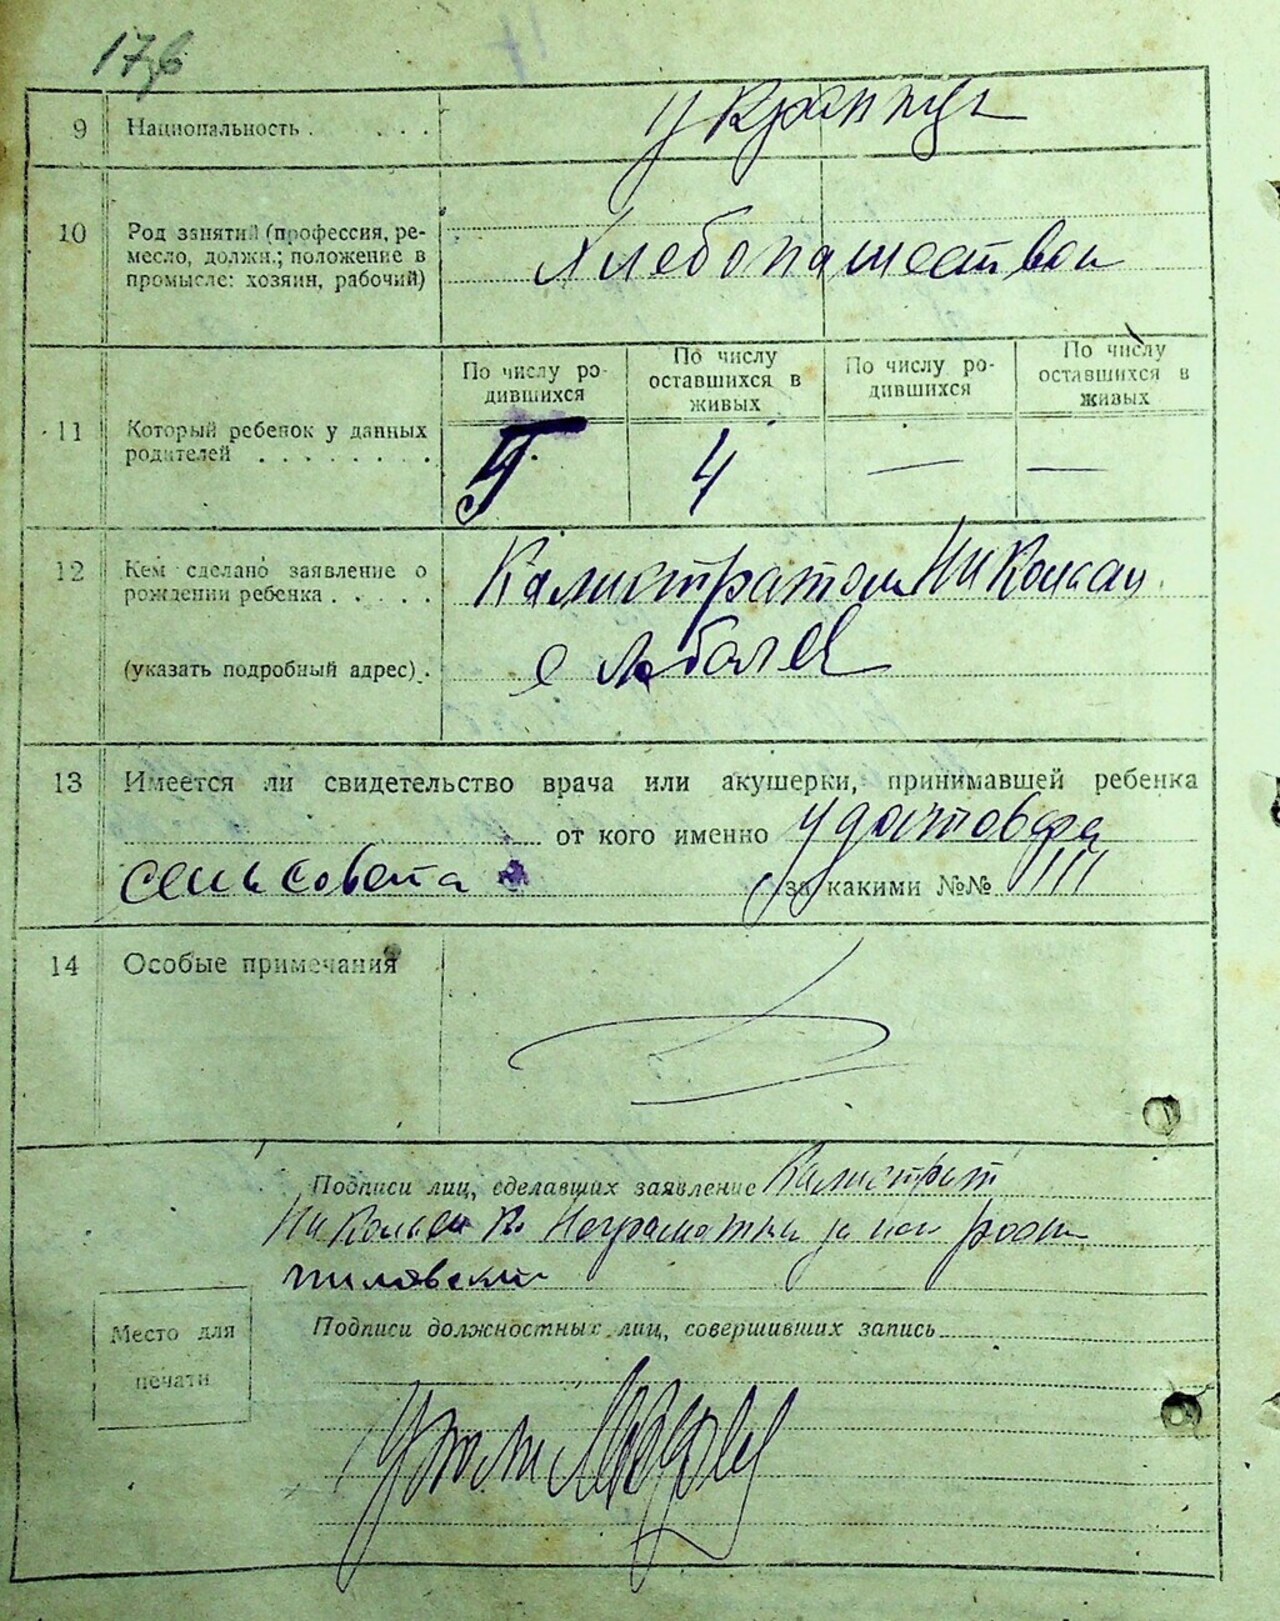 17
9 Национальность . . . . украинцы
10 Род занятий (профессия, ре-
месло, должн.; положение в
промысле: хозяин, рабочий)
Хлебопашеством
11 Который ребенок у данных
родителей . . . . . . . .
По числу ро-
дившихся
По числу
оставшихся в
живых
По числу ро-
дившихся
По числу
оставшихся в
живых
5 4 — —
12 Кем сделано заявление о
рождении ребенка . . . . .
Калистратом
(указать подробный адрес) .
с
13 Имеется ли свидетельство врача или акушерки, принимавшей ребенка
от кого именно удостовер
сельсовета за какими №№
14 Особые примечания
Подписи лиц, сделавших заявление Калистрат
Неграмотны за
Место для
печати
Подписи должностных лиц, совершивших запись